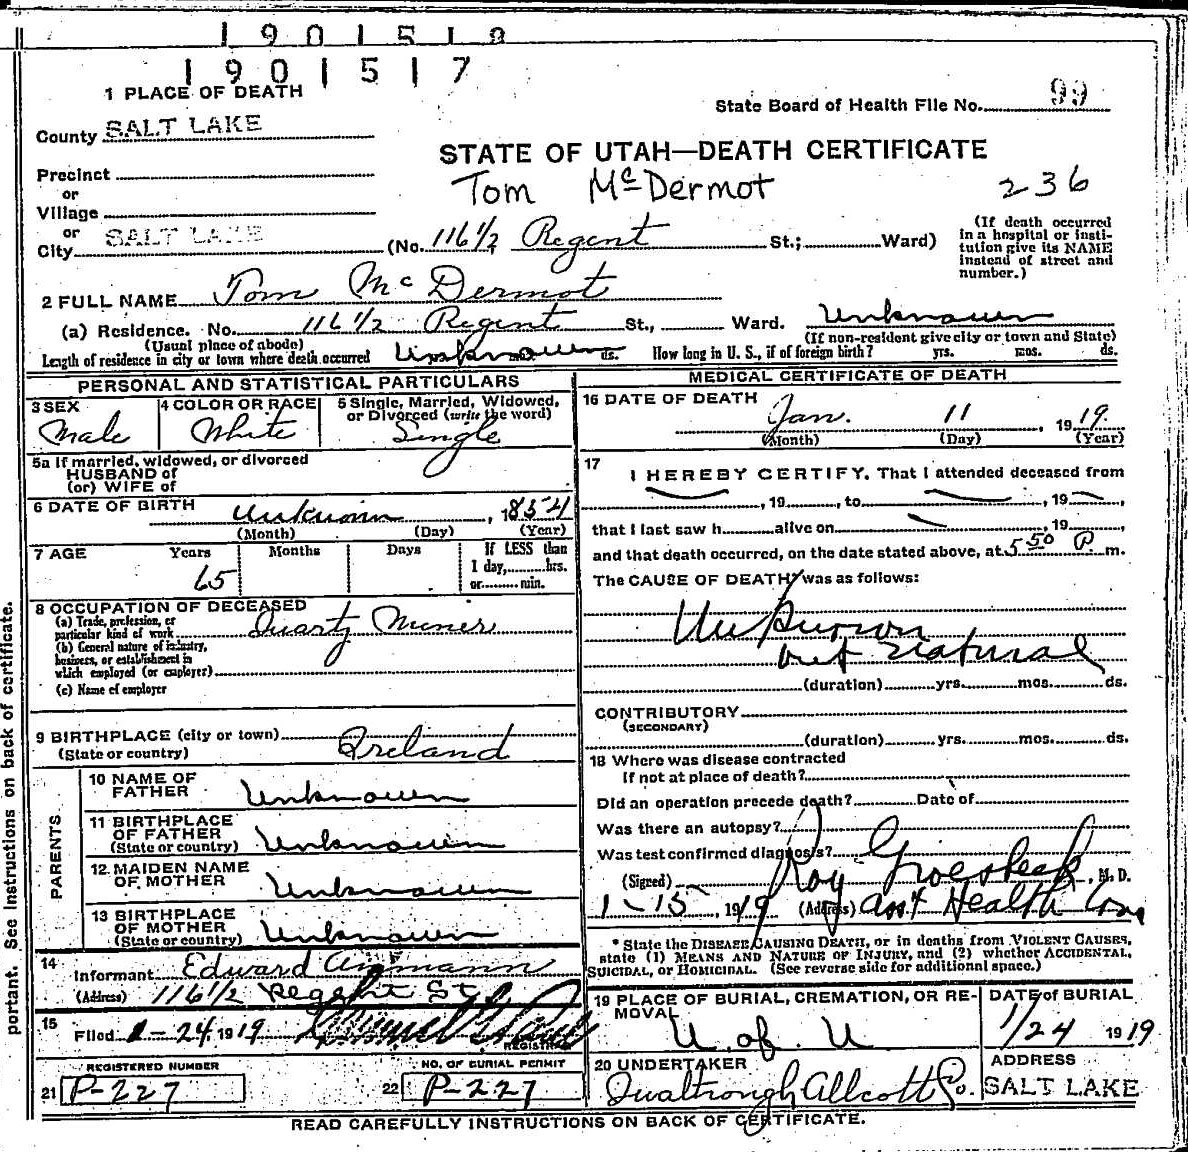 1901518
1901517
1 PLACE OF DEATH
State Board of Health File No. 99
County SALT LAKE
STATE OF UTAH—DEATH CERTIFICATE
Precinct
Tom McDermot 236
or
Village
or
City SALT LAKE (No. 116 1/2 Regent St.; Ward)
(If death occurred in a hospital or insti-
tution give its NAME
instead of street and
number.)
2 FULL NAME Tom McDermot
(a) Residence. No. 116 1/2 Regent St., Ward. Unknown
(Usual place of abode) (If non-resident give city or town and State)
Length of residence in city or town where death occurred Unknown ds. How long in U. S., if of foreign birth? yrs. mos. ds.
PERSONAL AND STATISTICAL PARTICULARS
3 SEX Male
4 COLOR OR RACE White
5 Single, Married, Widowed,
or Divorced (write the word)
Single
5a If married, widowed, or divorced
HUSBAND of
(or) WIFE of
6 DATE OF BIRTH Unknown, 1854
(Month) (Day) (Year)
7 AGE Years Months Days If LESS than
65 1 day, hrs.
or min.
8 OCCUPATION OF DECEASED
(a) Trade, profession, or
particular kind of work Quartz Miner
(b) General nature of industry,
business, or establishment in
which employed (or employer)
(c) Name of employer
9 BIRTHPLACE (city or town)
(State or country) Ireland
PARENTS
10 NAME OF
FATHER Unknown
11 BIRTHPLACE
OF FATHER
(State or country) Unknown
12 MAIDEN NAME
OF MOTHER Unknown
13 BIRTHPLACE
OF MOTHER
(State or country) Unknown
14 Informant Edward
(Address) 116 1/2 Regent St
15 Filed 1-24 1919
REGISTRAR
REGISTERED NUMBER NO. OF BURIAL PERMIT
21 P-227 22 P-227
MEDICAL CERTIFICATE OF DEATH
16 DATE OF DEATH
Jan. 11, 1919.
(Month) (Day) (Year)
17
I HEREBY CERTIFY, That I attended deceased from
, 19 , to , 19 ,
that I last saw h alive on , 19 ,
and that death occurred, on the date stated above, at 5 50 P. m.
The CAUSE OF DEATH* was as follows:
Unknown
but natural
(duration) yrs. mos. ds.
CONTRIBUTORY
(SECONDARY)
(duration) yrs. mos. ds.
18 Where was disease contracted
if not at place of death?
Did an operation precede death? Date of
Was there an autopsy?
Was test confirmed diagnosis?
(Signed) Roy Groesbeck, M. D.
1-15, 1919 (Address) Asst Health Com
* State the DISEASE CAUSING DEATH, or in deaths from VIOLENT CAUSES,
state (1) MEANS AND NATURE OF INJURY, and (2) whether ACCIDENTAL,
SUICIDAL, or HOMICIDAL. (See reverse side for additional space.)
19 PLACE OF BURIAL, CREMATION, OR RE-
MOVAL U of U
DATE of BURIAL
1/24 1919
20 UNDERTAKER
Qualtrough Allcott Co.
ADDRESS
SALT LAKE
READ CAREFULLY INSTRUCTIONS ON BACK OF CERTIFICATE.
portant. See instructions on back of certificate.